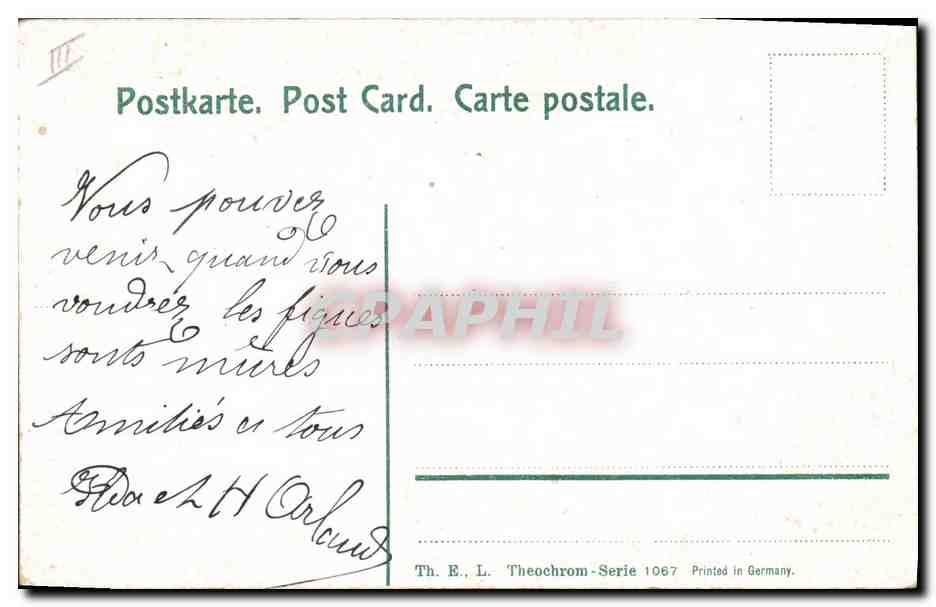 III
Postkarte. Post Card. Carte postale.
Vous pouvez
venir quand vous
voudrez les figues
sonts mûres
Amitiés a tous
et H Arland
CPAPHIL
Th. E., L. Theochrom-Serie 1067 Printed in Germany.